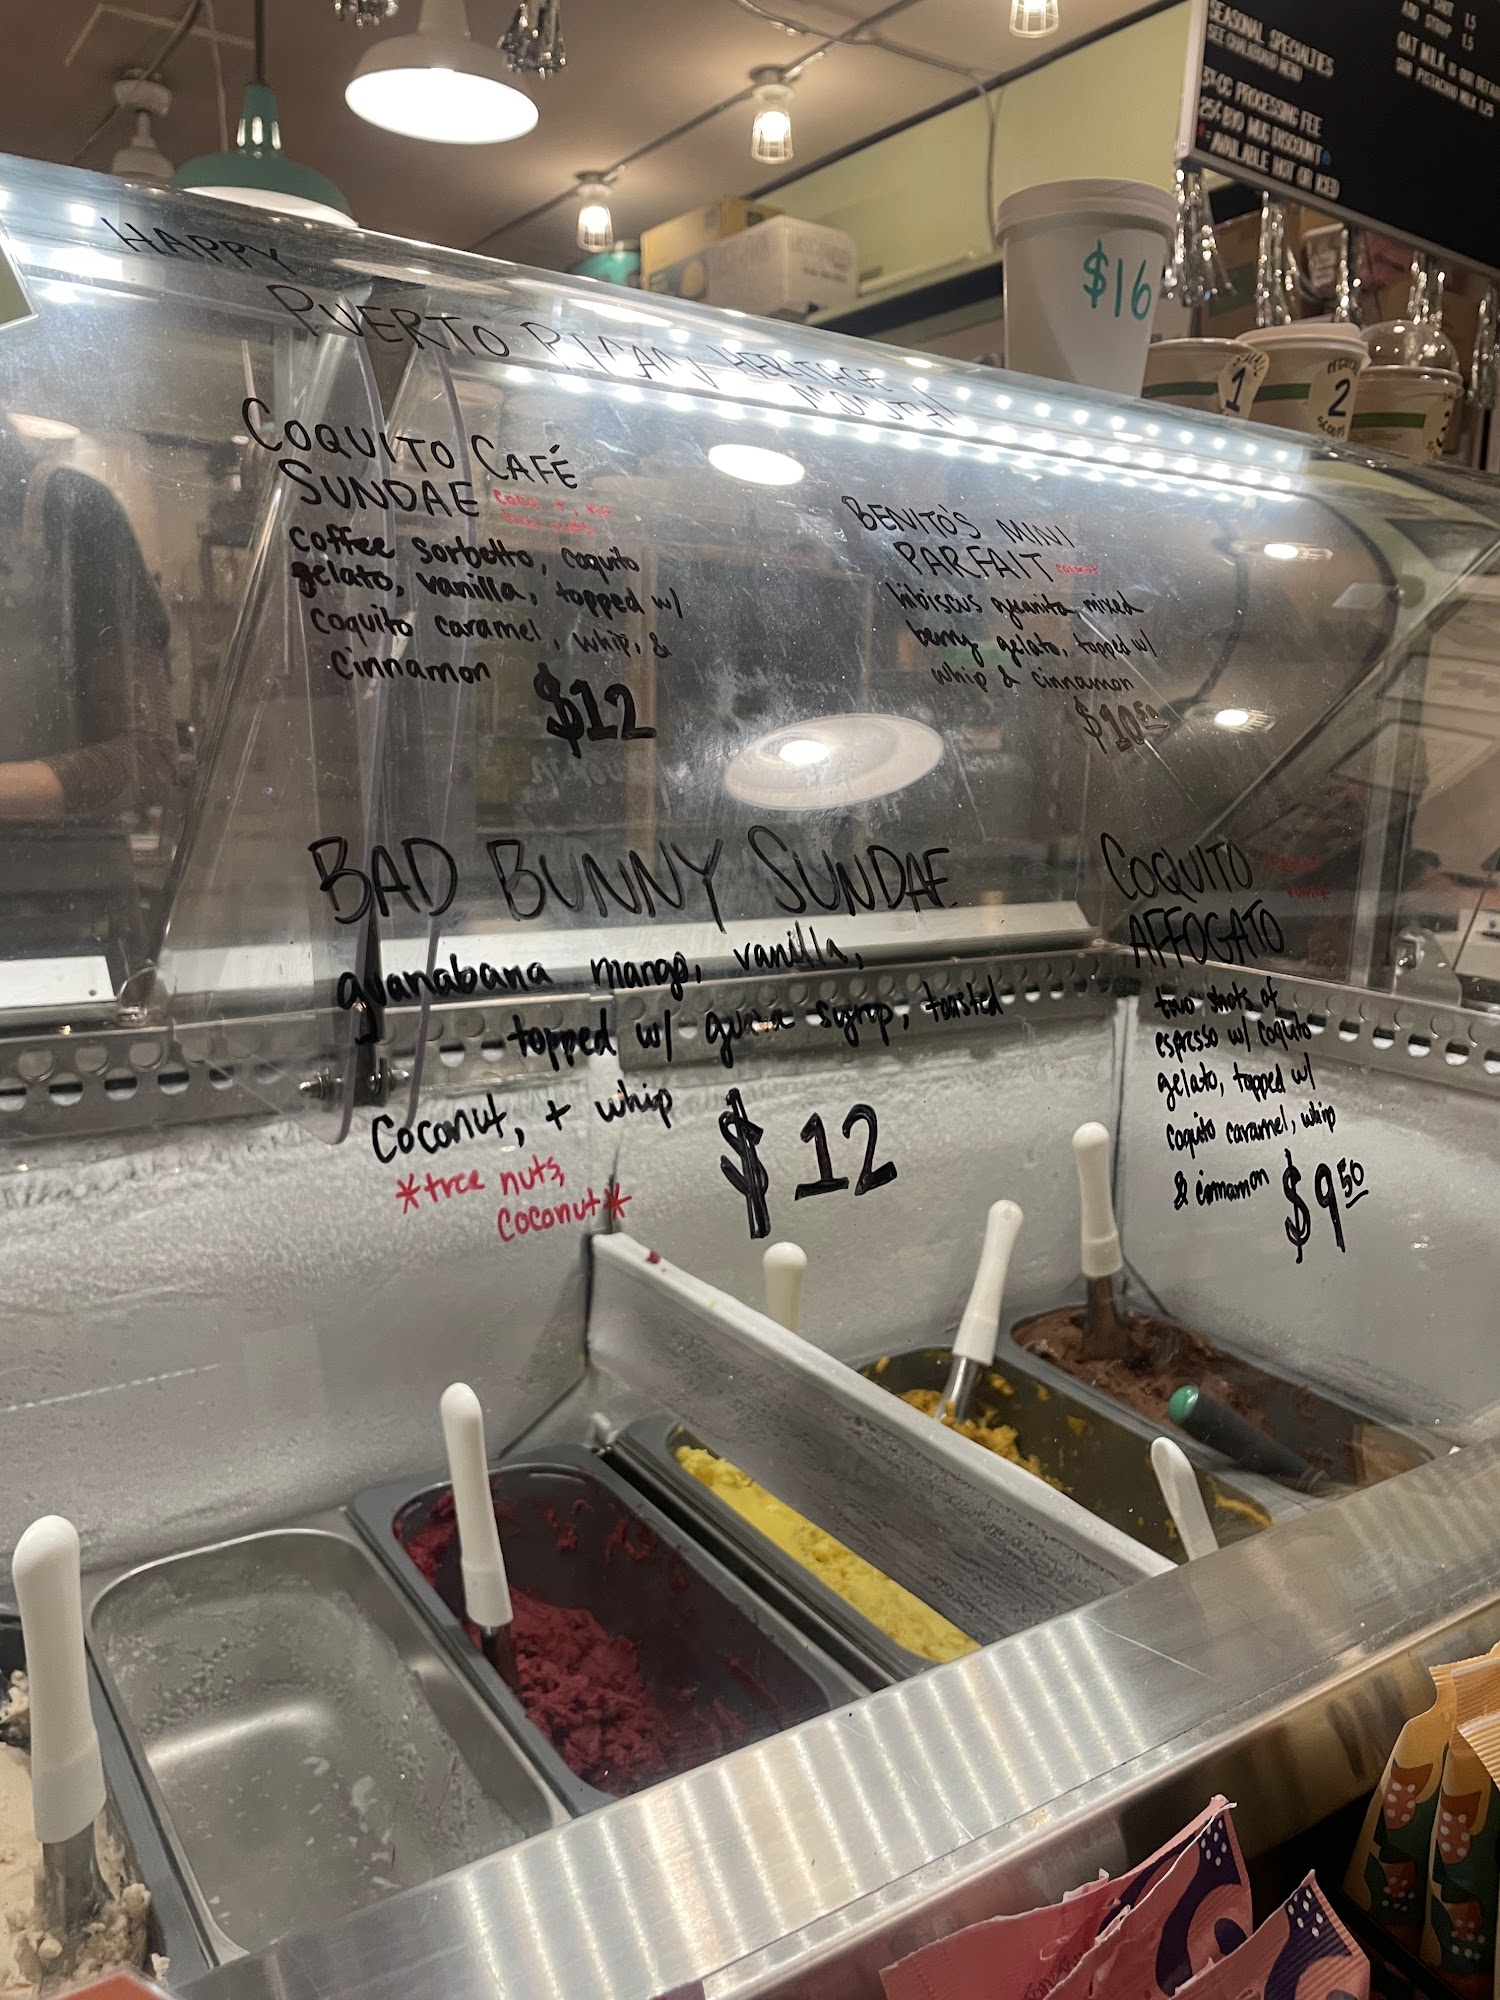 HAPPY
PUERTO RICAN HERITAGE
MONTH!
COQUITO CAFÉ
SUNDAE
coffee sorbetto, coquito
gelato, vanilla, topped w/
coquito caramel, whip, &
cinnamon
$12
BENITO'S MINI
PARFAIT coconut
hibiscus granita, mixed
berry gelato, topped w/
whip & cinnamon
$10.50
BAD BUNNY SUNDAE
guanabana mango, vanilla,
topped w/ guava syrup, toasted
coconut, + whip
$12
*tree nuts,
coconut*
COQUITO
AFFOGATO
two shots of
espresso w/ coquito
gelato, topped w/
coquito caramel, whip
& cinnamon
$9.50
SEASONAL SPECIALTIES
SEE CHALKBOARD MENU
3% CC PROCESSING FEE
25¢ BYO MUG DISCOUNT
*= AVAILABLE HOT OR ICED
1.5
ADD SYRUP 1.5
OAT MILK IS OUR
SUB PISTACHIO MILK 1.25
$16
1
2
SCOOPS
3